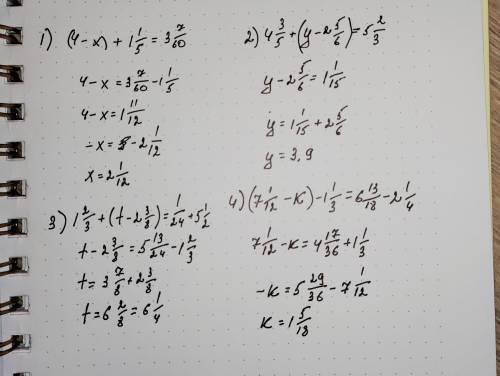 1) (4-x) + 1 1/5 = 3 7/60
4-x = 3 7/60 - 1 1/5
4-x = 1 11/12
-x = -2 1/12
x = 2 1/12
2) 4 3/5 + (y - 2 5/6) = 5 2/3
y - 2 5/6 = 1 1/15
y = 1 1/15 + 2 5/6
y = 3,9
3) 1 2/3 + (t - 2 3/8) = 1/24 + 5 1/2
t - 2 3/8 = 5 13/24 - 1 2/3
t = 3 7/8 + 2 3/8
t = 6 2/8 = 6 1/4
4) (7 1/12 - K) - 1 1/3 = 6 13/18 - 2 1/4
7 1/12 - K = 4 17/36 + 1 1/3
-K = 5 29/36 - 7 1/12
K = 1 5/18